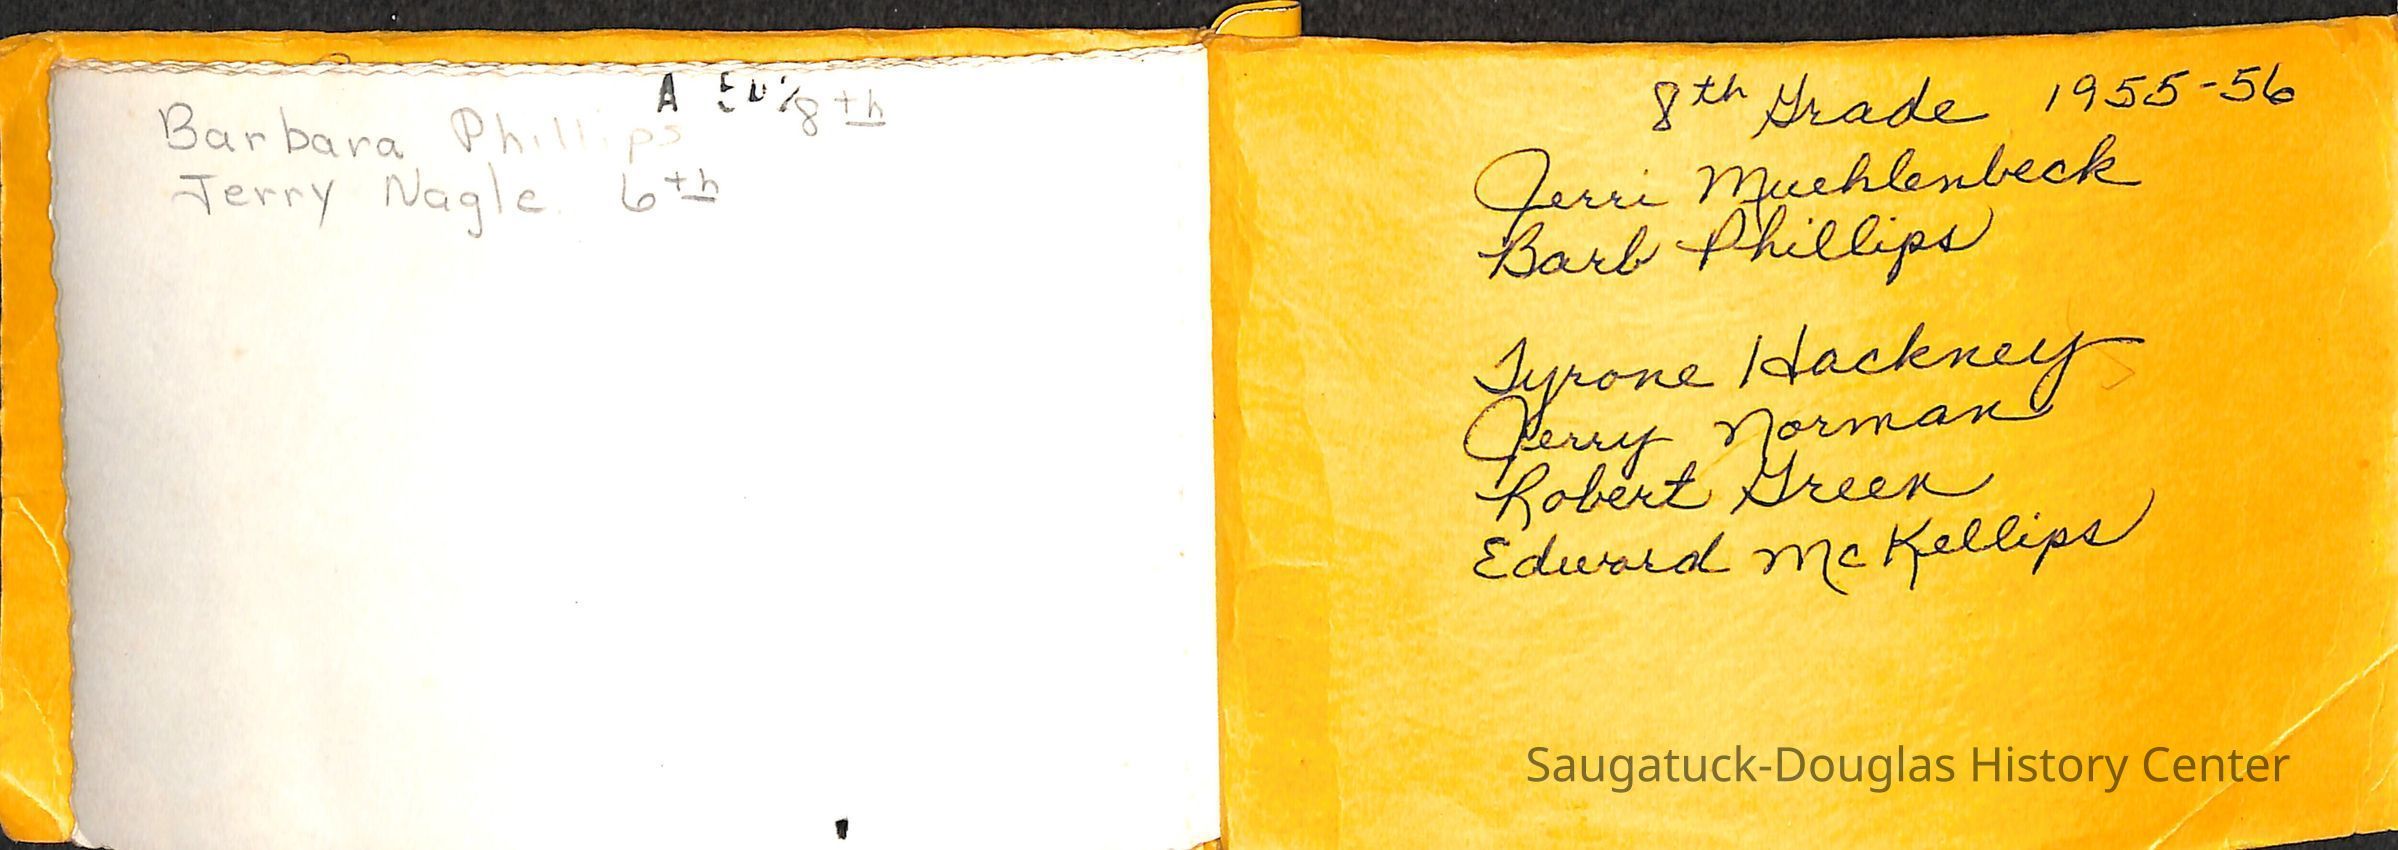 Barbara Phillips 8th
Jerry Nagle 6th
8th Grade 1955-56
Jerri Muehlenbeck
Barb Phillips
Tyrone Hackney
Jerry Norman
Robert Green
Edward McKellips
Saugatuck-Douglas History Center